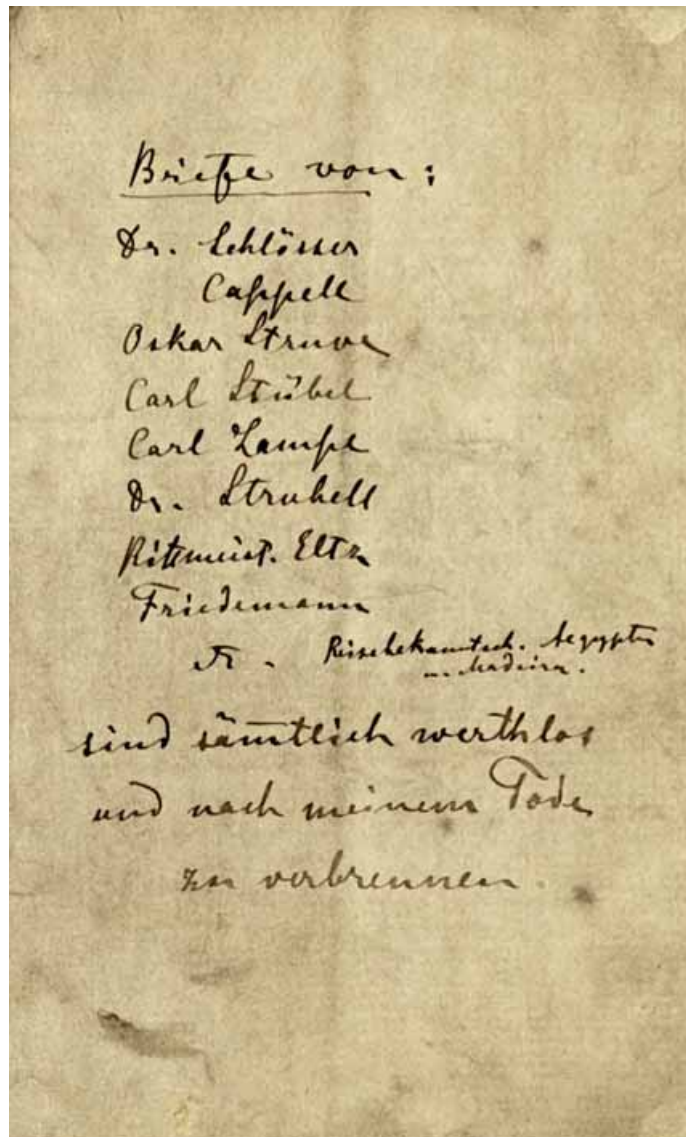 Briefe von:
Dr. Schlösser
Cappell
Oskar Struve
Carl Stübel
Carl Lampe
Dr. Strubell
Rittmeist. Eltz
Friedemann
Reisebekanntsch. Aegypten
u. Madeira.
sind sämtlich werthlos
und nach meinem Tode
zu verbrennen.